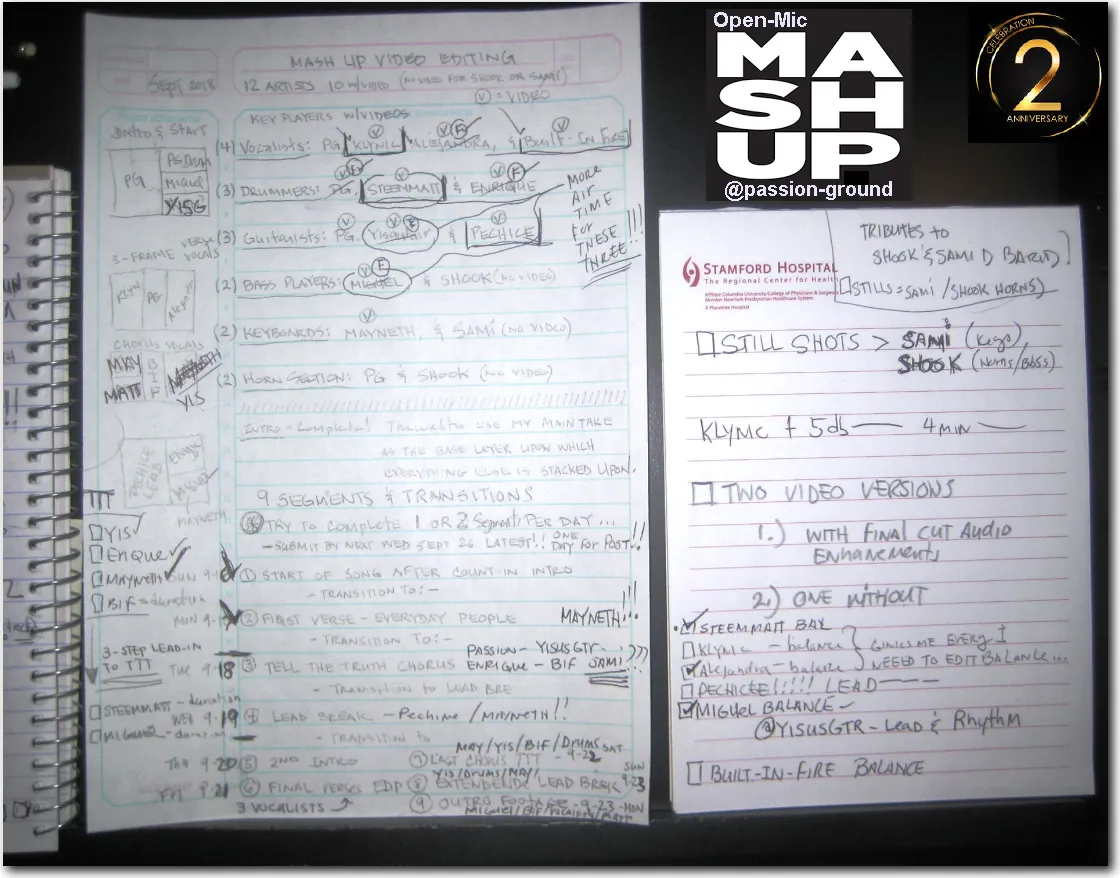 Open-Mic
MASHUP
@passion-ground
CELEBRATION
2
ANNIVERSARY
MASH UP VIDEO EDITING
SEPT 2018
12 ARTISTS 10 W/VIDEO (NO VIDEO FOR SHOOK OR SAMI)
V = VIDEO
KEY PLAYERS W/VIDEOS
(4) VOCALISTS: PG, KLYNIC, ALEJANDRA, & BUILT-IN FIRE
(3) DRUMMERS: PG, STEEMMATT & ENRIQUE
(3) GUITARISTS: PG, & PECHICHE
MORE
AIR
TIME
FOR
THESE
THREE!!!
(2) BASS PLAYERS: MIGUEL & SHOOK (NO VIDEO)
(2) KEYBOARDS: MAYNETH, & SAMI (NO VIDEO)
(2) HORN SECTION: PG & SHOOK (NO VIDEO)
INTRO = Complete! USE MY MAIN TAKE
AS THE BASE LAYER UPON WHICH
EVERYTHING ELSE IS STACKED UPON.
9 SEGMENTS & TRANSITIONS
TRY TO COMPLETE 1 OR 2 Segments PER DAY...
- SUBMIT BY NEXT WED SEPT 26 LATEST!! ONE DAY FOR POST!!
① START OF SONG AFTER COUNT-IN INTRO
- TRANSITION TO:-
② FIRST VERSE - EVERYDAY PEOPLE MAYNETH!!!
- TRANSITION TO:-
PASSION - YISUSGTR -
③ TELL THE TRUTH CHORUS ENRIQUE - BIF SAMI!
- TRANSITION TO LEAD BRE
④ LEAD BREAK - /MAYNETH!!
- TRANSITION TO
MAY/YIS/BIF/DRUMS SAT
⑤ 2ND INTRO ⑦ LAST CHORUS TTT - 9-22
YIS/DRUMS/MAY/ SUN
⑥ FINAL VERSES EDP ⑧ LEAD BREAK 9-23
3 VOCALISTS ⑨ OUTRO FOOTAGE - 9-23 - MON
Intro & START
PG
PG Drum
MIGUEL
YISG
3-FRAME VERSE VOCALS
KLYN
PG
CHORUS VOCALS
MAY
MATT
BIF
YIS
PECHICE
LEAD
MAYNETH
TTT
YIS
ENRIQUE
MAYNETH SUN 9-16
BIF = duration
MON 9-17
3-STEP LEAD-IN
TO TTT TUE 9-18
STEEMMATT - duration
WED 9-19
MIGUEL - duration
THU 9-20
FRI 9-21
TRIBUTES TO
SHOOK & SAMI D BARUD
STILLS = SAMI / SHOOK HORNS
STAMFORD HOSPITAL
The Regional Center for Health
Affiliate Columbia University-College of Physicians & Surgeons
Member NewYork-Presbyterian Healthcare System
A Planetree Hospital
STILL SHOTS > SAMI (Keys)
SHOOK (HORNS/BASS)
KLYNIC + 5db — 4 MIN —
TWO VIDEO VERSIONS
1.) WITH FINAL CUT AUDIO
ENHANCEMENTS
2.) ONE WITHOUT
STEEMMATT BAL
KLYNIC - balance
Alejandra - balance
GIVES ME EVERY I
NEED TO EDIT BALANCE...
PECHICEE!!!! LEAD
MIGUEL BALANCE -
@YISUSGTR - LEAD & Rhythm
BUILT-IN-FIRE BALANCE